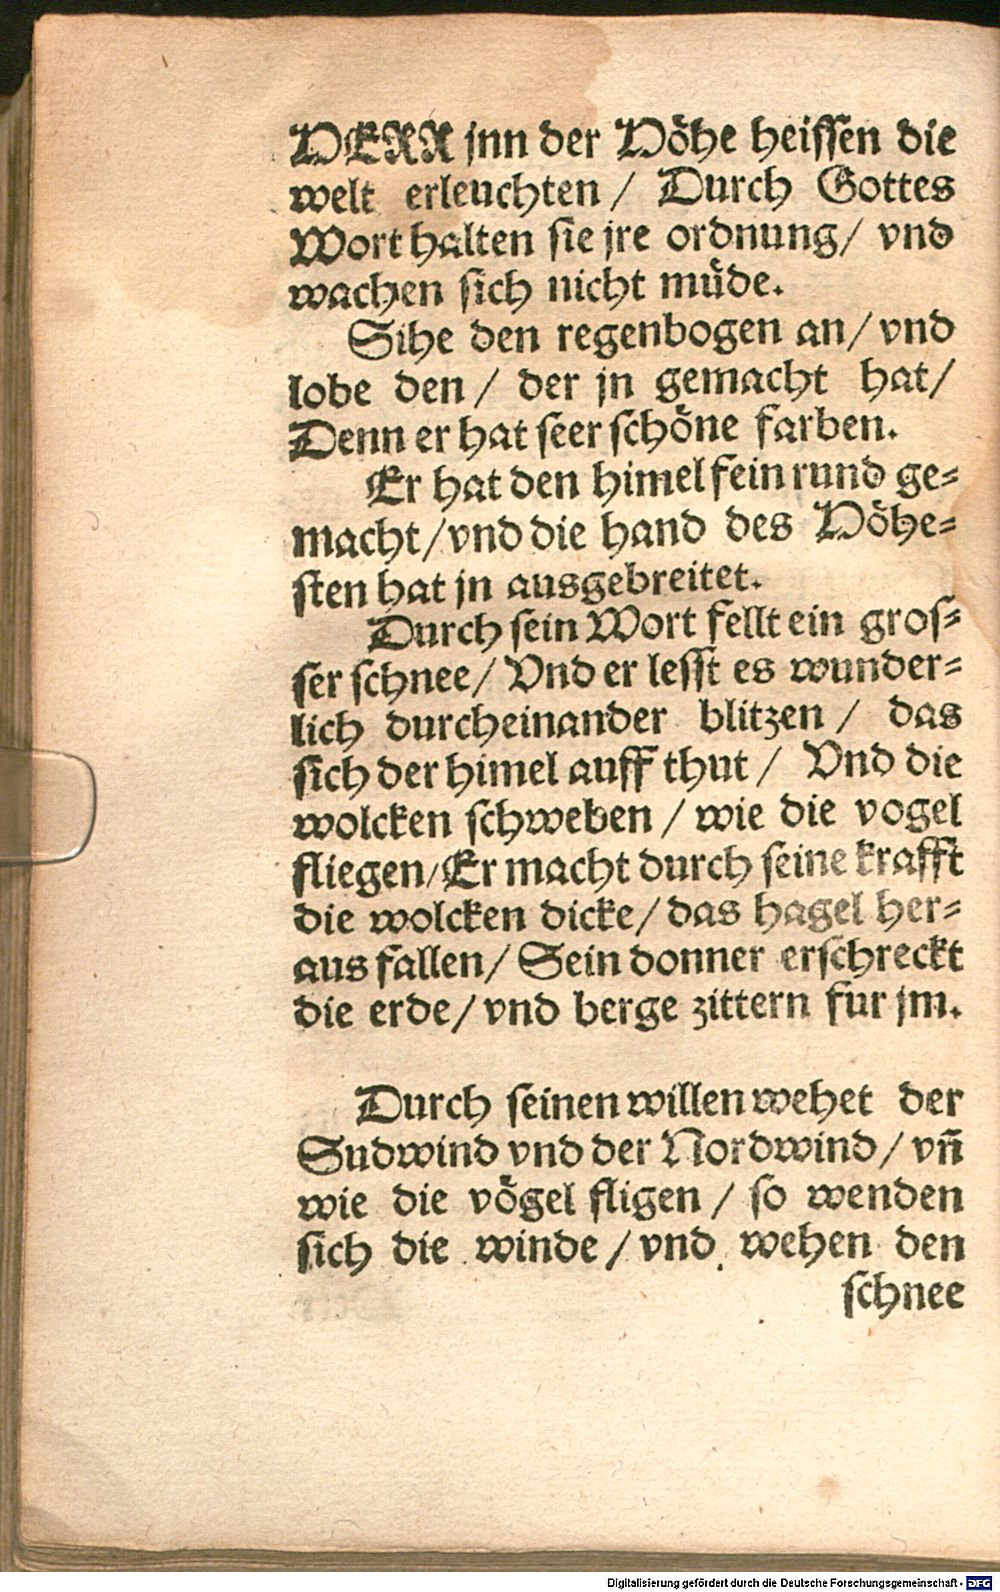 HERR jnn der Höhe heissen die
welt erleuchten / Durch Gottes
Wort halten sie jre ordnung/ vnd
wachen sich nicht müde.
Sihe den regenbogen an/ vnd
lobe den / der jn gemacht hat/
Denn er hat seer schöne farben.
Er hat den himel fein rund ge=
macht/ vnd die hand des Höhe=
sten hat jn ausgebreitet.
Durch sein Wort fellt ein gros=
ser schnee/ Vnd er lesst es wunder=
lich durcheinander blitzen / das
sich der himel auff thut / Vnd die
wolcken schweben / wie die vogel
fliegen/ Er macht durch seine krafft
die wolcken dicke/ das hagel her=
aus fallen/ Sein donner erschreckt
die erde/ vnd berge zittern fur jm.
Durch seinen willen wehet der
Sudwind vnd der Nordwind / vñ
wie die vögel fligen / so wenden
sich die winde / vnd wehen den
schnee
Digitalisierung gefördert durch die Deutsche Forschungsgemeinschaft - DFG